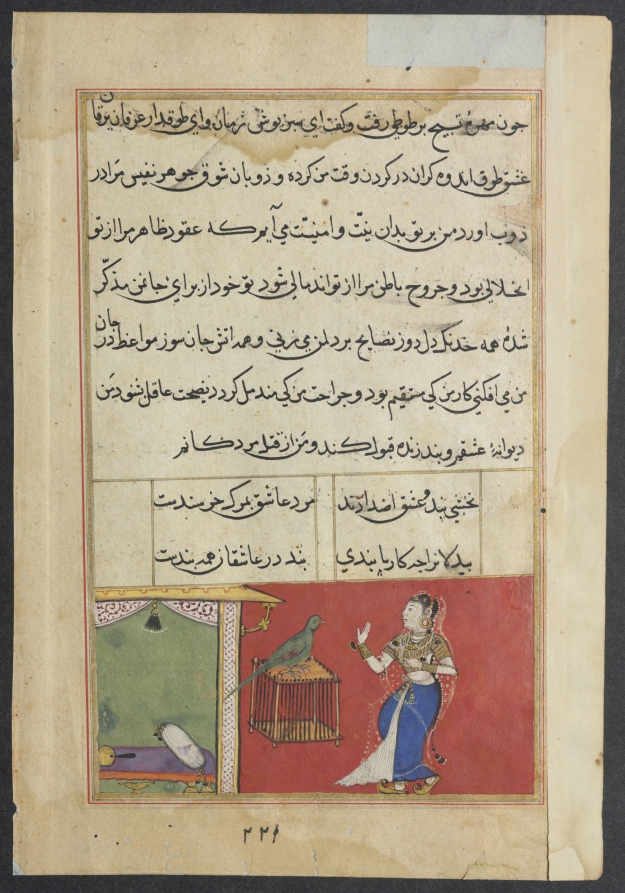 چون بر طوطی رفت و گفت ای سبز پوش زمان و ای طوقدار عرفان
عشق طوق اندوه کران در کردن وقت من کرده و ذوبان شوق جوهر نفیس مرا در
ذوب اورد من بر تو بدان نیت و امنیت می آیم که عقود ظاهر مرا از تو
انحلالی بود و جروح باطن مرا از تو اندمالی شود تو خود از برای جانمن مذکر
شدۀ همه خدنک دل دوز نصایح بر دلمن می زنی و همه اتش جان سوز مواعظ در جان
من می افکنی کار من کی مستقیم بود و جراحت من کی مندمل کردد نصیحت عاقل شنود من
دیوانۀ عشقم و بند زنده قبول کند و من از قبیل مردکانم
نخشبی پند و عشق اضدادند مرد عاشق بمرکه خرسندست
بیدلانرا چه کار با پندی پند در عاشقان همه بندست
۲۲۹